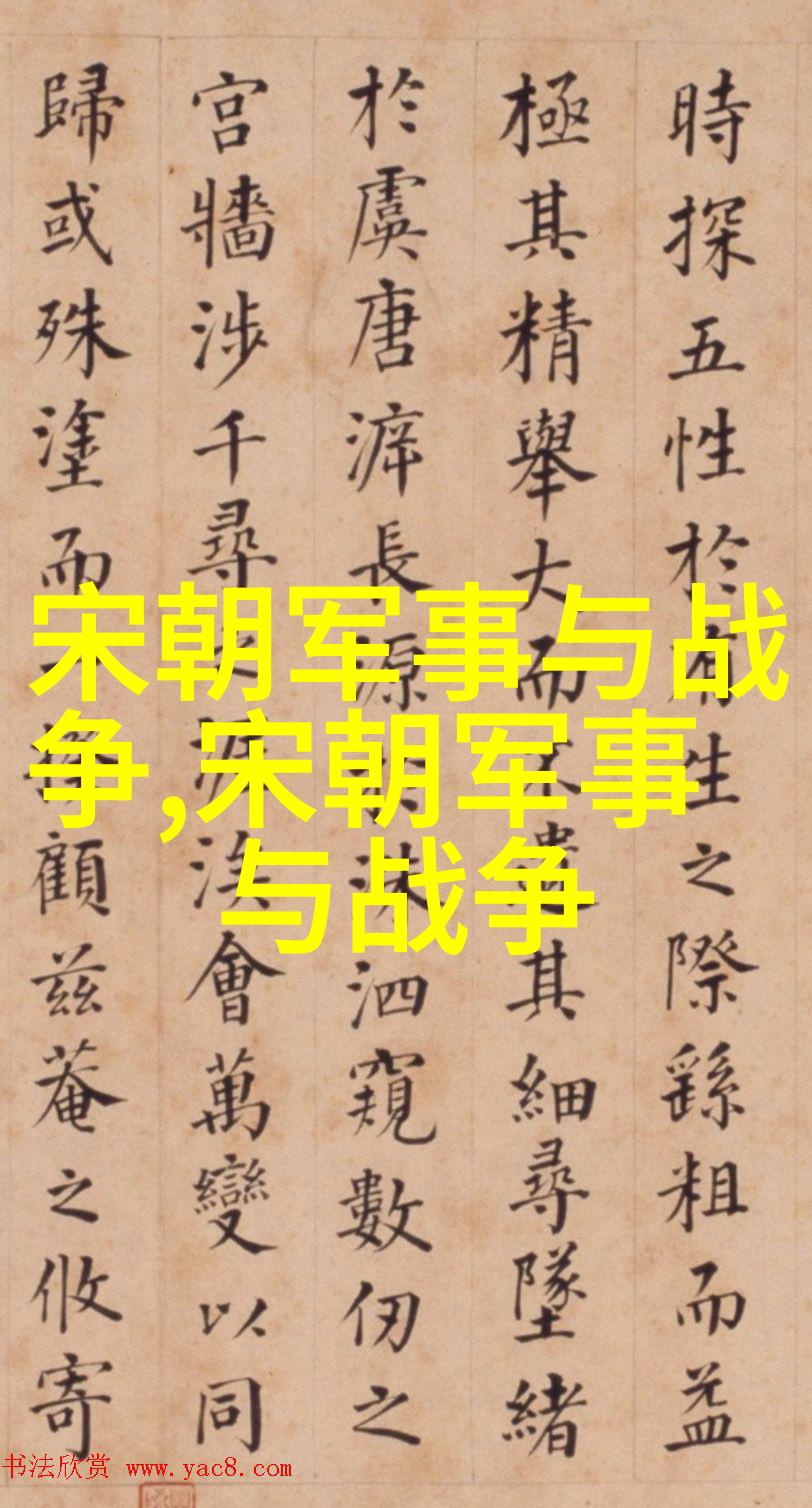 時探五性於有生之際繇粗而益
極其精舉大而不遺其細尋墜緒
於虞唐長源於洙泗窺數仞之
宮牆涉千尋之涘會萬變以同
歸或殊塗而一揆顧兹菴之攸寄
宋朝军事与战
争,宋朝军事
与战争
书法欣赏 www.yac8.com